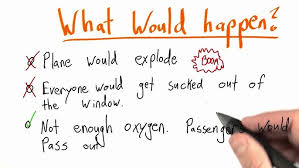 What Would happen?
Plane would explode Boom
Everyone would get sucked out of
the window.
Not enough oxygen. Passengers would
Pass out